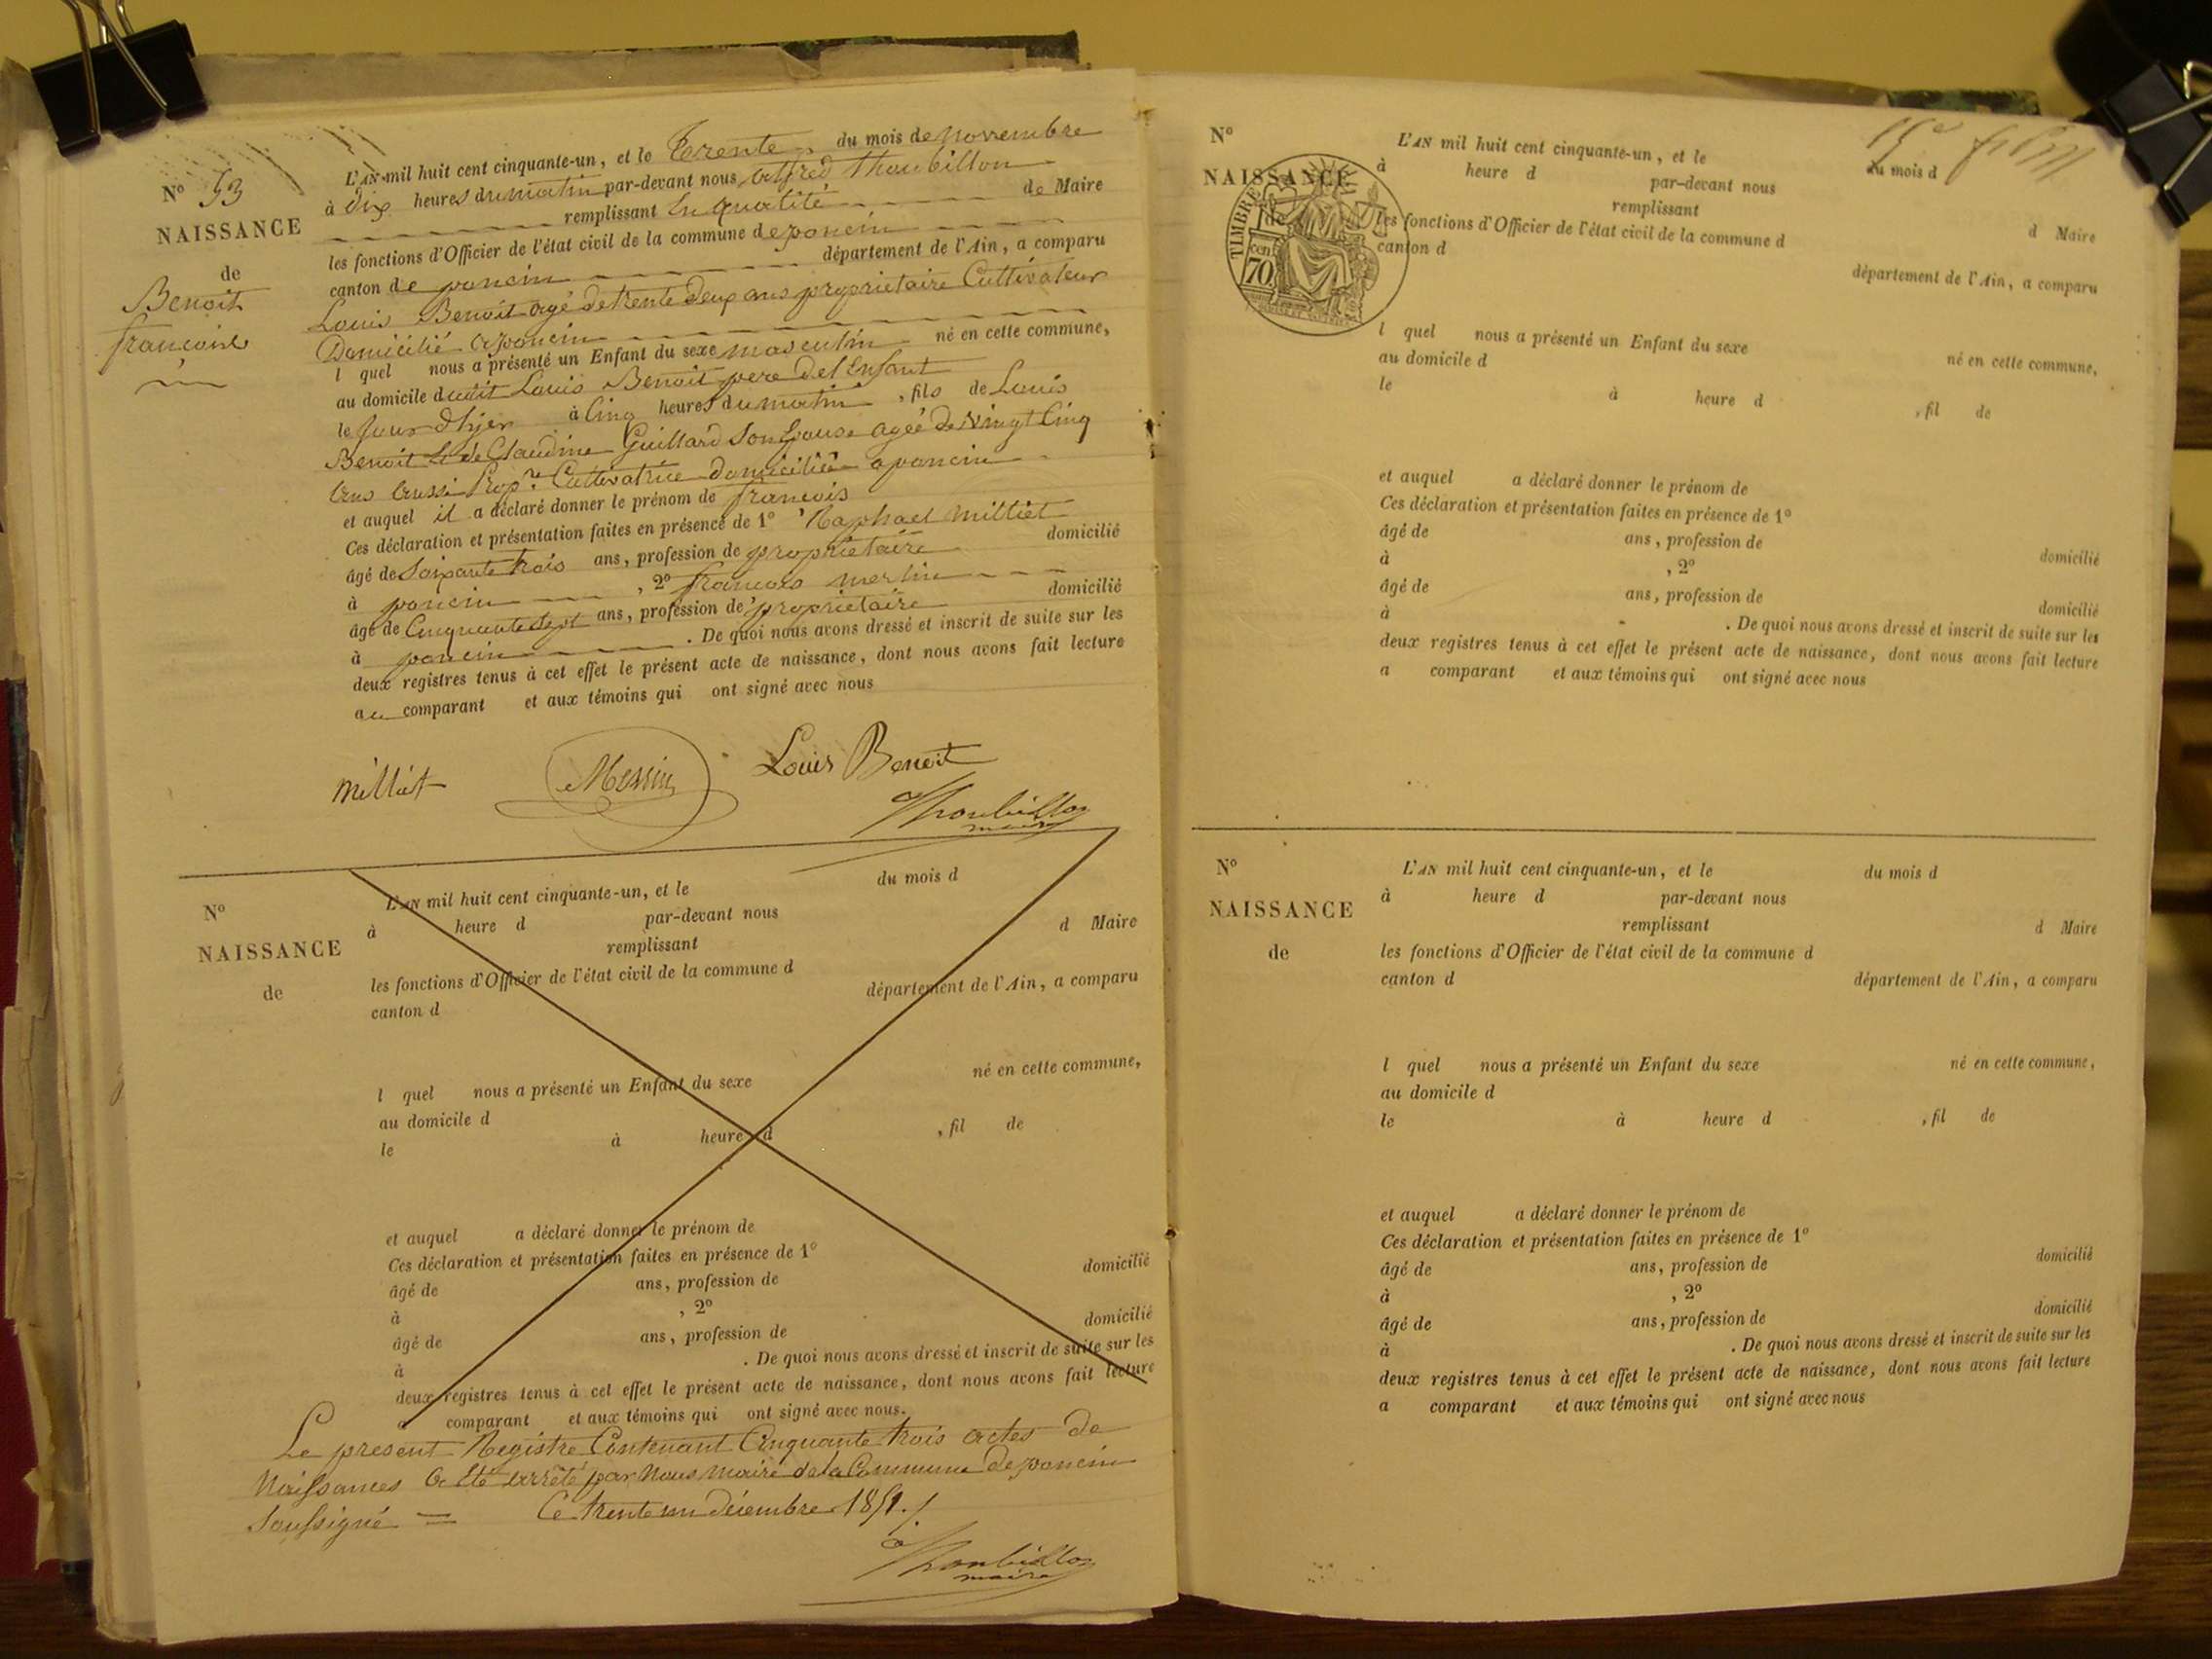 N° 53
NAISSANCE
de
Benoit
francois
L'AN mil huit cent cinquante-un, et le Trente du mois de novembre
à dix heures du matin par-devant nous alfred Thoubillon
remplissant En qualité de Maire
les fonctions d'Officier de l'état civil de la commune de poncin
canton de poncin département de l'Ain, a comparu
Louis Benoit agé de trente deux ans proprietaire Cultivateur
Domicilié a poncin
l quel nous a présenté un Enfant du sexe masculin né en cette commune,
au domicile dudit Louis Benoit pere del Enfant
le jour d'hjer à Cinq heures du matin, fils de Louis
Benoit Et de Claudine Guillard Son Epouse agée de vingt Cinq
ans aussi Propre Cultivatrice domiciliée a poncin
et auquel il a déclaré donner le prénom de francois
Ces déclaration et présentation faites en présence de 1° Raphael Milliet
âgé de Soixante trois ans, profession de proprietaire domicilié
à poncin, 2° francois
âgé de Cinquante Sept ans, profession de proprietaire domicilié
à poncin. De quoi nous avons dressé et inscrit de suite sur les
deux registres tenus à cet effet le présent acte de naissance, dont nous avons fait lecture
au comparant et aux témoins qui ont signé avec nous
Milliet Messin Louis Benoit
a Thoubillon
maire
N°
NAISSANCE
de
L'AN mil huit cent cinquante-un, et le du mois d
à heure d par-devant nous
remplissant d Maire
les fonctions d'Officier de l'état civil de la commune d
canton d département de l'Ain, a comparu
l quel nous a présenté un Enfant du sexe né en cette commune,
au domicile d
le à heure d , fil de
et auquel a déclaré donner le prénom de
Ces déclaration et présentation faites en présence de 1°
âgé de ans, profession de domicilié
à , 2°
âgé de ans, profession de domicilié
à . De quoi nous avons dressé et inscrit de suite sur les
deux registres tenus à cet effet le présent acte de naissance, dont nous avons fait lecture
a comparant et aux témoins qui ont signé avec nous.
Le present Registre Contenant Cinquante trois actes de
Naissances a Eté arrêté par Nous maire de la Commune de poncin
Soussigné Ce trente un Décembre 1851.
a Thoubillon
maire
15e film
N°
NAISSANCE
de
TIMBRE
cen
70
L'AN mil huit cent cinquante-un, et le du mois d
à heure d par-devant nous
remplissant d Maire
les fonctions d'Officier de l'état civil de la commune d
canton d département de l'Ain, a comparu
l quel nous a présenté un Enfant du sexe né en cette commune,
au domicile d
le à heure d , fil de
et auquel a déclaré donner le prénom de
Ces déclaration et présentation faites en présence de 1°
âgé de ans, profession de domicilié
à , 2°
âgé de ans, profession de domicilié
à . De quoi nous avons dressé et inscrit de suite sur les
deux registres tenus à cet effet le présent acte de naissance, dont nous avons fait lecture
a comparant et aux témoins qui ont signé avec nous
N°
NAISSANCE
de
L'AN mil huit cent cinquante-un, et le du mois d
à heure d par-devant nous
remplissant d Maire
les fonctions d'Officier de l'état civil de la commune d
canton d département de l'Ain, a comparu
l quel nous a présenté un Enfant du sexe né en cette commune,
au domicile d
le à heure d , fil de
et auquel a déclaré donner le prénom de
Ces déclaration et présentation faites en présence de 1°
âgé de ans, profession de domicilié
à , 2°
âgé de ans, profession de domicilié
à . De quoi nous avons dressé et inscrit de suite sur les
deux registres tenus à cet effet le présent acte de naissance, dont nous avons fait lecture
a comparant et aux témoins qui ont signé avec nous